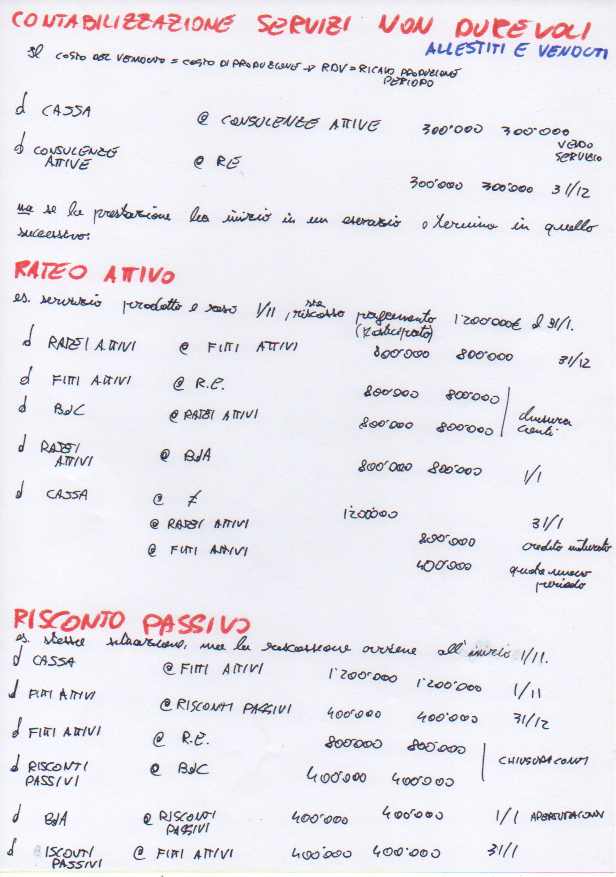 CONTABILIZZAZIONE SERVIZI NON DUREVOLI
ALLESTITI E VENDUTI
Il COSTO DEL VENDUTO = COSTO DI PRODUZIONE → RDV = RICAVO PRODUZIONE
PERIODO
d CASSA @ CONSULENZE ATTIVE 300'000 300'000
VENDO
SERVIZIO
d CONSULENZE
ATTIVE @ RE
300'000 300'000 31/12
ma se la prestazione ha inizio in un esercizio e termina in quello
successivo:
RATEO ATTIVO
es. servizio prodotto e reso 1/11, ma riscosso pagamento 1'200'000€ il 31/1.
(posticipato)
d RATEI ATTIVI @ FITTI ATTIVI 800'000 800'000 31/12
d FITTI ATTIVI @ R.E. 800'000 800'000
d BdC @ RATEI ATTIVI 800'000 800'000
chiusura
conti
d RATEI
ATTIVI @ BdA 800'000 800'000 1/1
d CASSA @ ≠ 1'200'000 31/1
@ RATEI ATTIVI 800'000 credito maturato
@ FITTI ATTIVI 400'000 quota nuovo
periodo
RISCONTO PASSIVO
es. stessa situazione, ma la riscossione avviene all'inizio 1/11.
d CASSA @ FITTI ATTIVI 1'200'000 1'200'000 1/11
d FITTI ATTIVI @ RISCONTI PASSIVI 400'000 400'000 31/12
d FITTI ATTIVI @ R.E. 800'000 800'000
CHIUSURA CONTI
d RISCONTI
PASSIVI @ BdC 400'000 400'000
d BdA @ RISCONTI
PASSIVI 400'000 400'000 1/1 APERTURA CONTI
d RISCONTI
PASSIVI @ FITTI ATTIVI 400'000 400'000 31/1